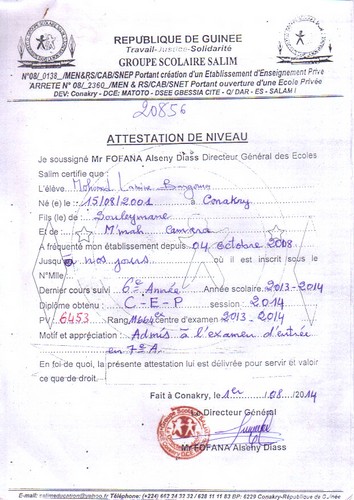 REPUBLIQUE DE GUINEE
Travail-Justice-Solidarité
GROUPE SCOLAIRE SALIM
N°08/_0138_/MEN&RS/CAB/SNEP Portant création d'un Etablissement d'Enseignement Privé
ARRETE N° 08/_2360_/MEN & RS/CAB/SNET Portant ouverture d'une Ecole Privée
DEV: Conakry - DCE: MATOTO - DSEE GBESSIA CITE - Q/ DAR - ES - SALAM I
20856
ATTESTATION DE NIVEAU
Je soussigné Mr FOFANA Alseny Diass Directeur Général des Ecoles
Salim certifie que :
L'élève Mohamed Lamine Bangoura
Né (e) le : 15/08/2001 à Conakry
Fils (le) de : Souleymane
Et de : M'mah Camara
A fréquenté mon établissement depuis 04 octobre 2008
Jusqu'à nos jours où il est inscrit sous le
N°Mlle
Dernier cours suivi 6è Année Année scolaire 2013-2014
Diplôme obtenu : C-E-P session : 2014
PV : 6453 Rang centre d'examen 2013-2014
Motif et appréciation : Admis à l'examen d'entrée
en 7è A.
En foi de quoi, la présente attestation lui est délivrée pour servir et valoir
ce que de droit.
Fait à Conakry, le 1er /08/2014
Le Directeur Général
Mr FOFANA Alseny Diass